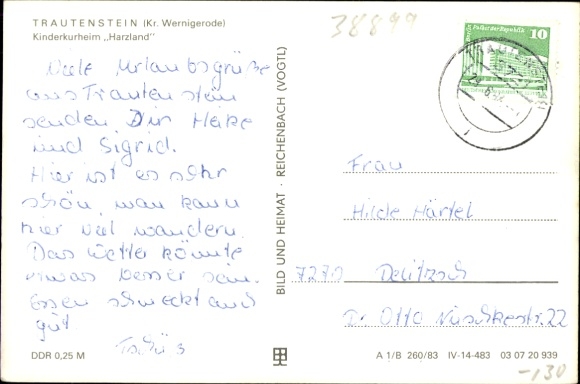 TRAUTENSTEIN (Kr. Wernigerode)
Kinderkurheim „Harzland"
Viele Urlaubsgrüße
aus Trautenstein
senden Dir Heike
und Sigrid.
Hier ist es sehr
schön, man kann
hier viel wandern.
Das Wetter könnte
etwas besser sein.
Essen schmeckt auch
gut
Tschüs
DDR 0,25 M
BILD UND HEIMAT · REICHENBACH (VOGTL)
38899
10
Palast der Republik
Frau
Hilde Härtel
7270 Delitzsch
Dr. Otto Nuschkestr. 22
A 1/B 260/83 IV-14-483 03 07 20 939
-130